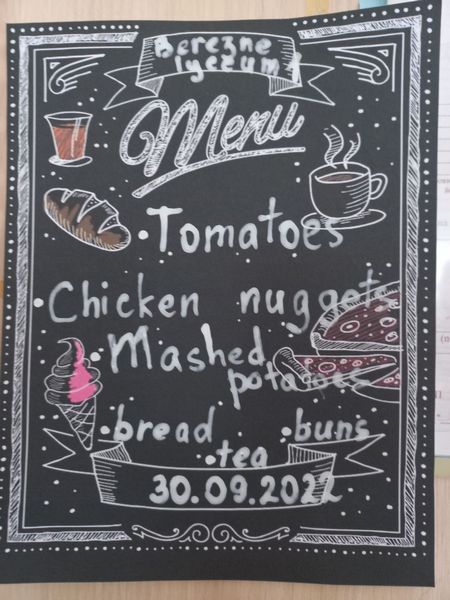 Berezne
lyczum 1
Menu
• Tomatoes
• Chicken nuggets
• Mashed
potatoes
• bread • buns
• tea
30.09.2022